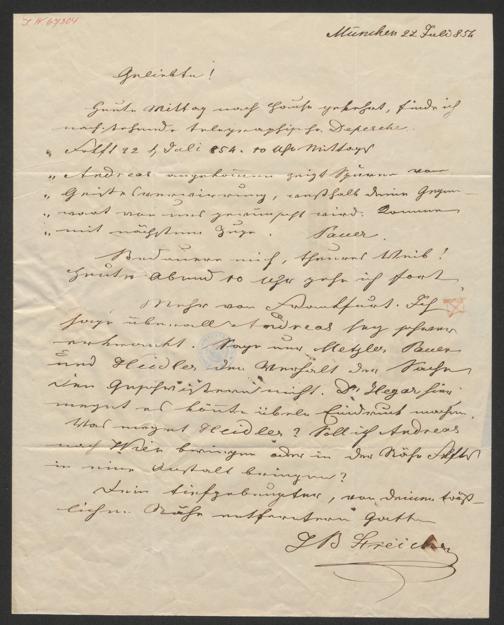 I N 67304
München 22 Juli 854
Geliebte!
Heute Mittag nach Hause gekehrt, finde ich
nachstehende telegraphische Depesche.
" 22 Juli 854. 10 Uhr Mittags
" Andreas angekommen zeigt Spuren von
" Geistesverwirrung, weßhalb deine Gegen-
" wart von uns gewünscht wird. Komme
" mit nächstem Zuge. Pauer.
Bedauere mich, theures Weib!
Heute Abend 10 Uhr gehe ich fort
Mehr von Frankfurt. Ich
sage überall Andreas sey schwer
erkrankt. Sage nur Metzler, Pauer
und Heidler den Verhalt der Sache
den Geschwistern nicht. Dr. Hegar hier
meynt es könte übeln Eindruck machen.
Was meynt Heidler? Soll ich Andreas
nach Wien bringen oder in der Nähe
in eine Anstalt bringen?
Dein tiefgebeugter, von deiner tröst-
lichen Nähe entfernter Gatte
J B Streicher